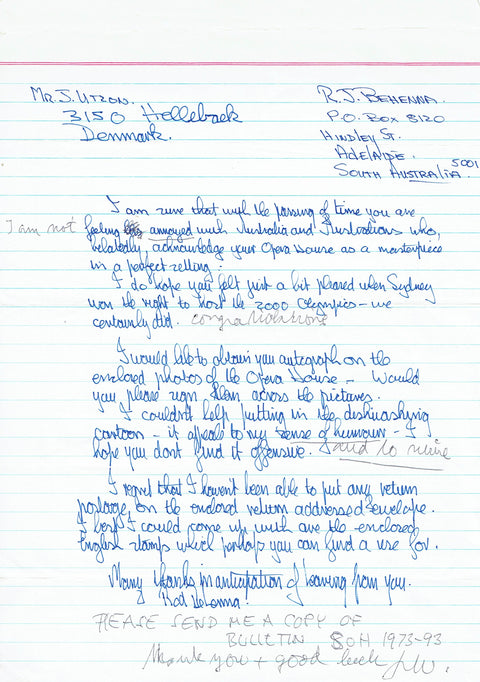 MR. J. UTZON.
3150 Hellebaek
Denmark.
R.J. BEHENNA.
P.O. BOX 8120
HINDLEY ST.
ADELAIDE. 5001
SOUTH AUSTRALIA.
I am sure that with the passing of time you are
I am not feeling annoyed with Australia and Australians who,
belatedly, acknowledge your Opera House as a masterpiece
in a perfect setting.
I do hope you felt just a bit pleased when Sydney
won the right to host the 2000 Olympics - we
certainly did. congratulations
I would like to obtain you autograph on the
enclosed photos of the Opera House - Would
you please sign them across the pictures.
I couldn't help putting in the dishwashing
cartoon - it appeals to my sense of humour - I
hope you dont find it offensive. and to mine
I regret that I haven't been able to put any return
postage on the enclosed return addressed envelope.
I best I could come up with are the enclosed
English stamps which perhaps you can find a use for.
Many thanks in anticipation of hearing from you.
Rod Behenna.
PLEASE SEND ME A COPY OF
BULLETIN SOH 1973-93
Thank you + good luck JU.